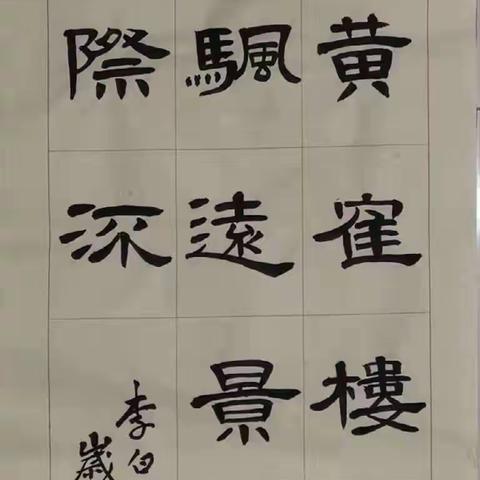 黄寉樓
颿遠景
際流
李白
歲